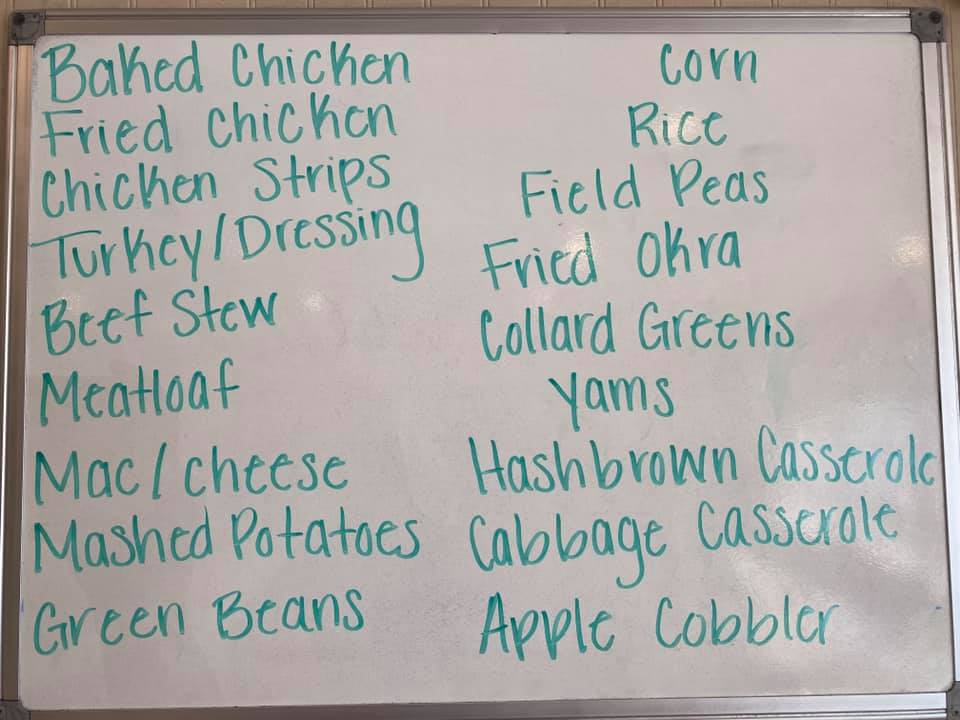 Baked Chicken
Fried Chicken
Chicken Strips
Turkey/Dressing
Beef Stew
Meatloaf
Mac/cheese
Mashed Potatoes
Green Beans
Corn
Rice
Field Peas
Fried Okra
Collard Greens
Yams
Hashbrown Casserole
Cabbage Casserole
Apple Cobbler